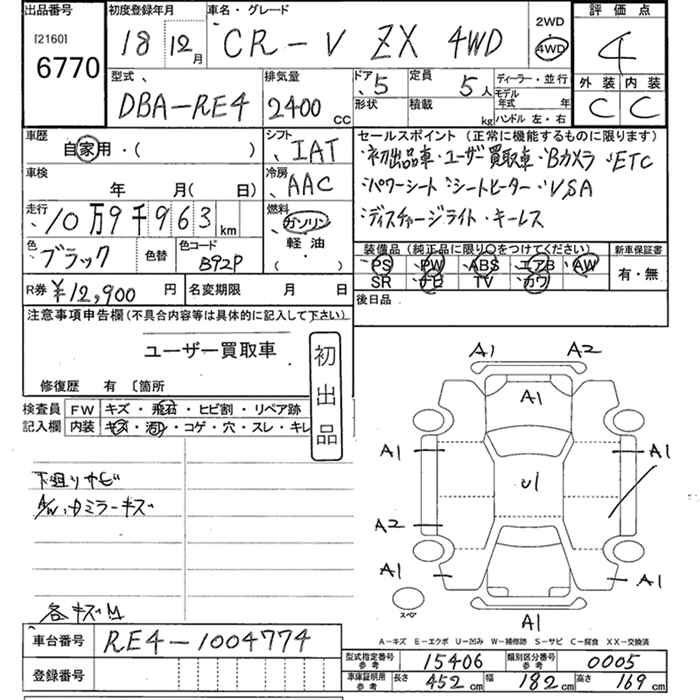 出品番号 初度登録年月 車名・グレード 2WD 評価点
[2160] 6770 18 12月 CR-V ZX 4WD 4WD 4
型式 排気量 ドア 5 定員 5人 ディーラー・並行 外装 内装
DBA-RE4 2400 cc 形状 積載 kg モデル年式 年 C C
ハンドル 左・右
車歴 シフト セールスポイント (正常に機能するものに限ります)
自家用・( ) IAT ・初出品車・ユーザー買取車・Bカメラ・ETC
車検 冷房 ・パワーシート・シートヒーター・VSA
年 月( 日) AAC ・ディスチャージライト・キーレス
走行 10万9千963km 燃料 ガソリン
軽油 装備品 (純正品に限り○をつけてください) 新車保証書
色 ブラック 色替 色コード B92P ( ) PS PW ABS エアB AW 有・無
SR ナビ TV カワ
R券 ¥12,900円 名変期限 月 日 後日品
注意事項申告欄(不具合内容等は具体的に記入して下さい)
ユーザー買取車 初出品
修復歴 有 〔箇所
検査員 FW キズ・飛石・ヒビ割・リペア跡
記入欄 内装 キズ・汚・コゲ・穴・スレ・キレ
A1 A2
A1
A1 A1
下廻りサビ U1
A/W、ドミラーキズ
A2
A1 A1
スペア
各キズM A1
A-キズ E-エクボ U-凹み W-補修跡 S-サビ C-腐食 XX-交換済
車台番号 RE4-1004774
型式指定番号 参考 15406 類別区分番号 参考 0005
登録番号 車庫証明用 参考 長さ 452cm 幅 182cm 高さ 169cm